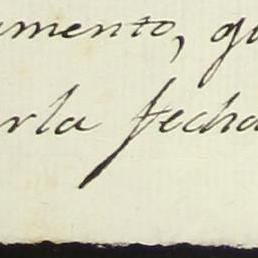 umento, qu
rla fecha